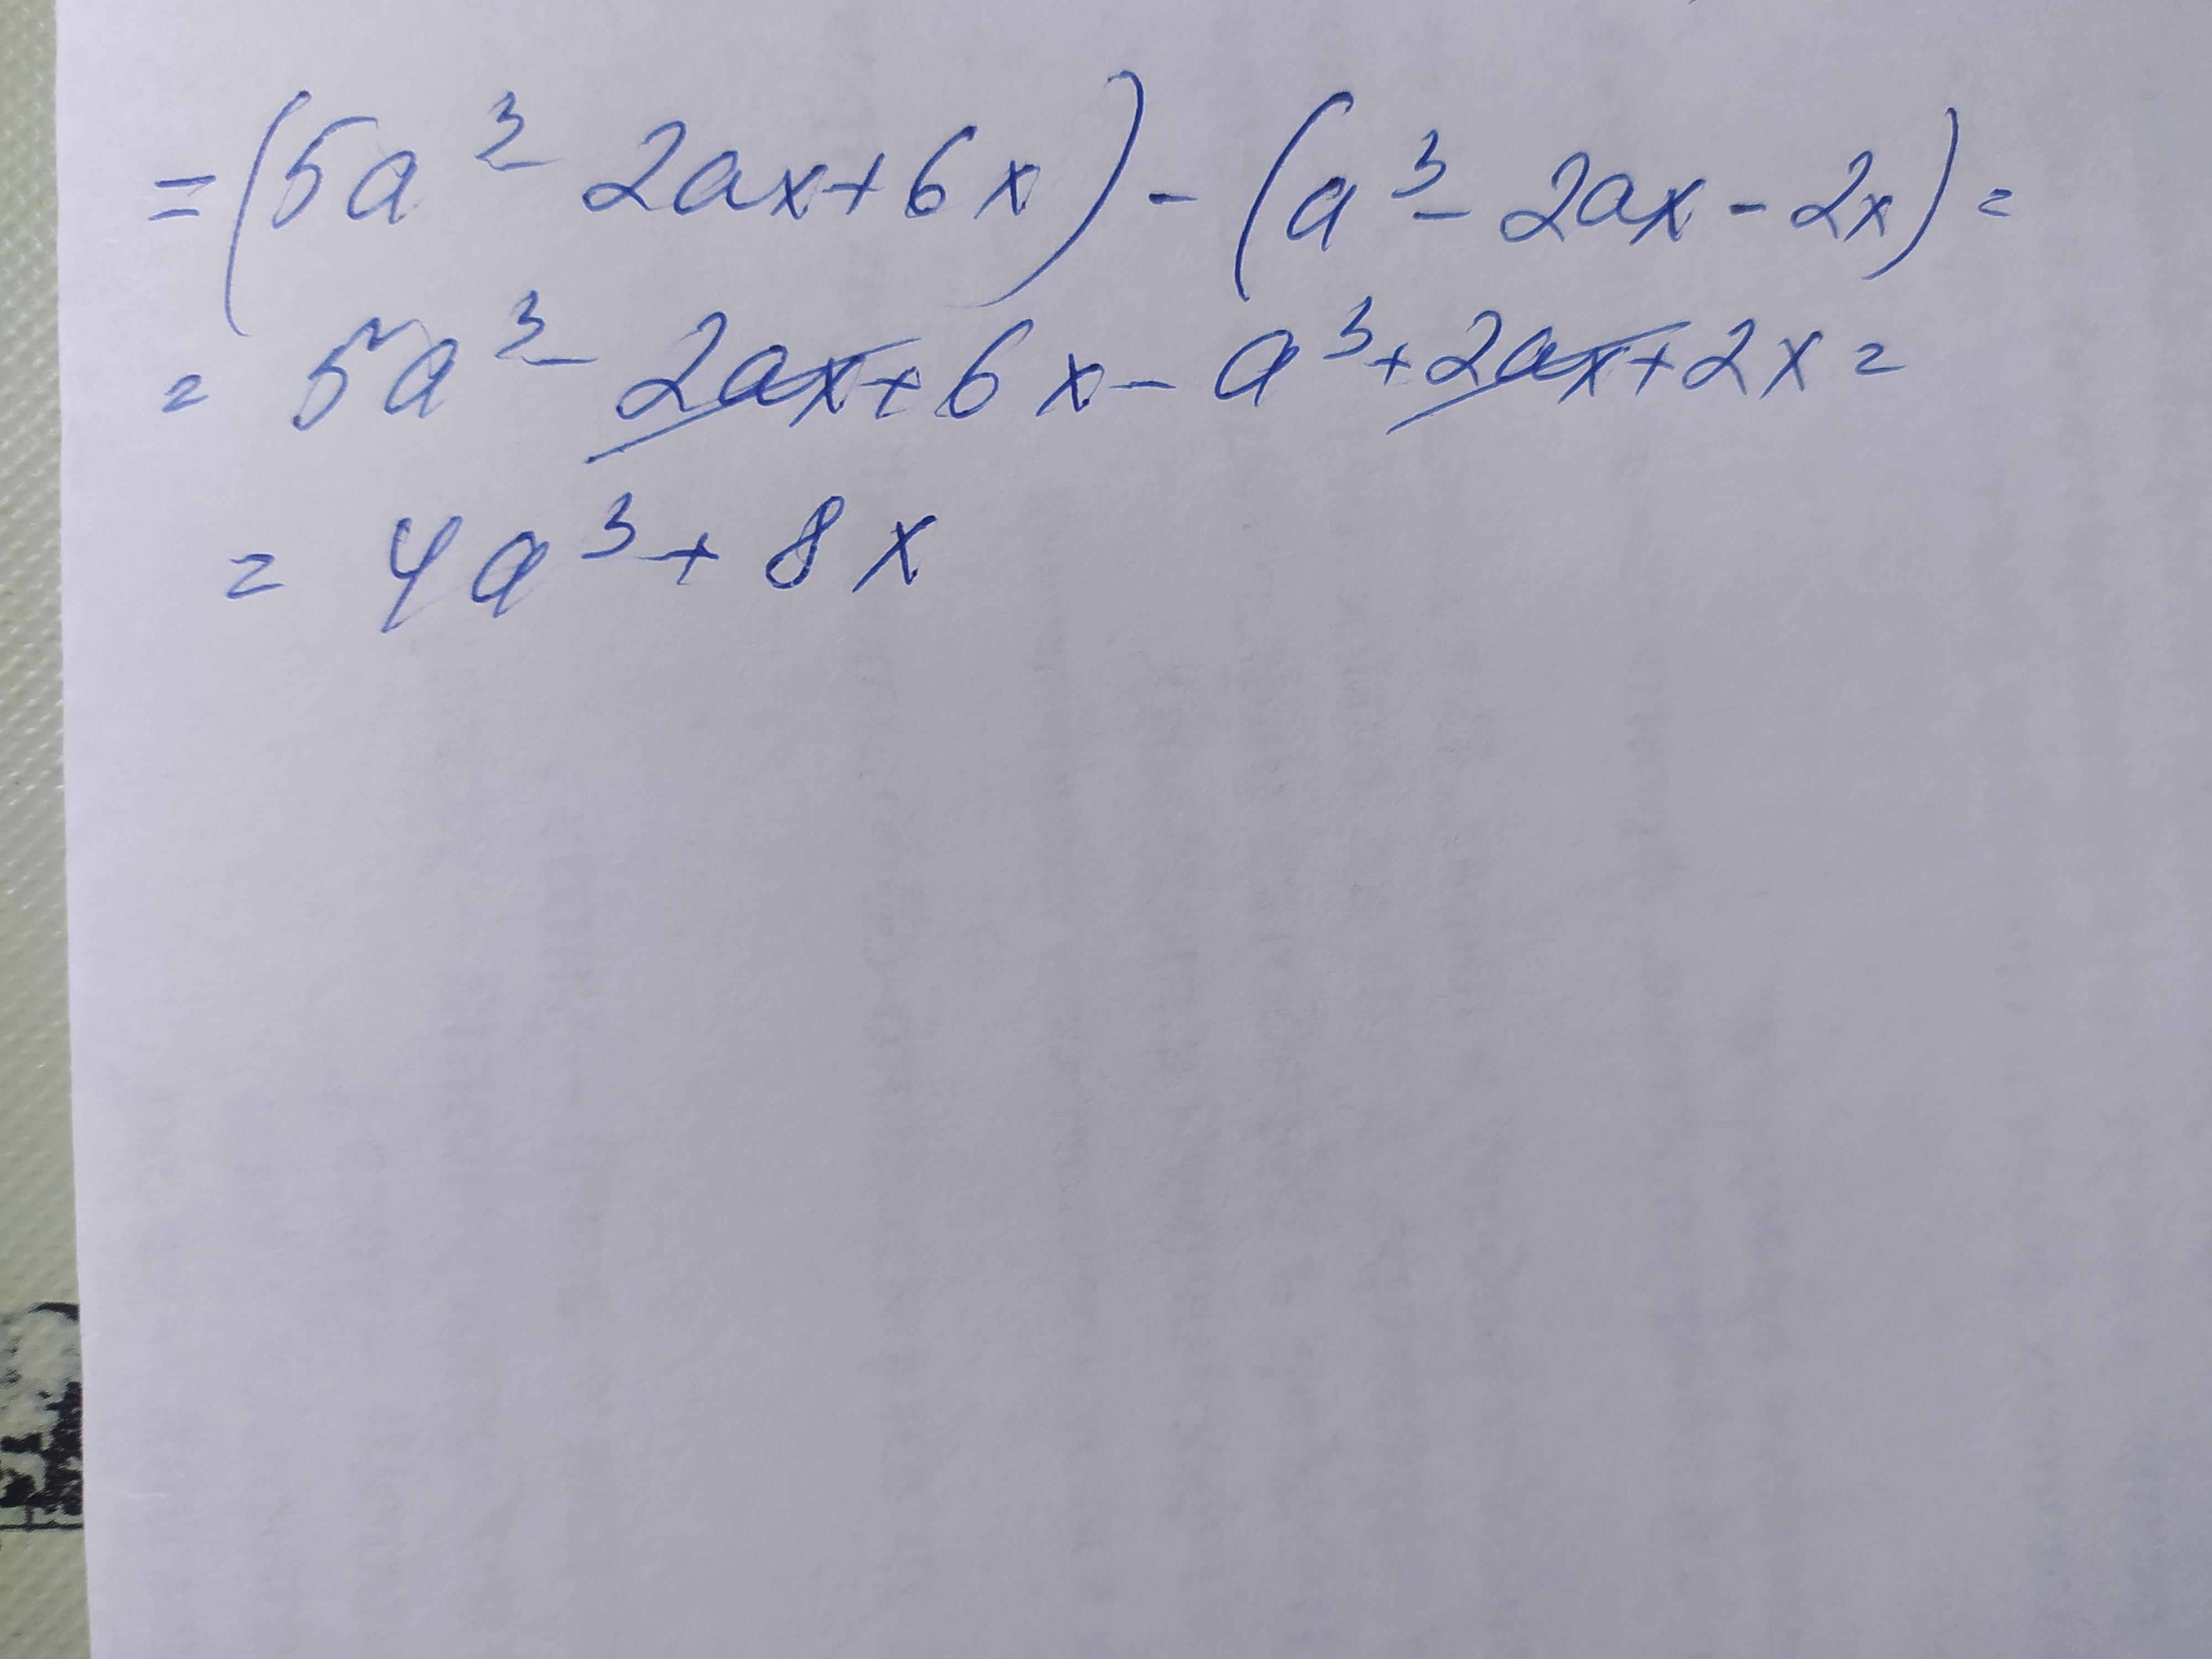 = (5a³ - 2ax + 6x) - (a³ - 2ax - 2x) =
= 5a³ - 2ax + 6x - a³ + 2ax + 2x =
= 4a³ + 8x